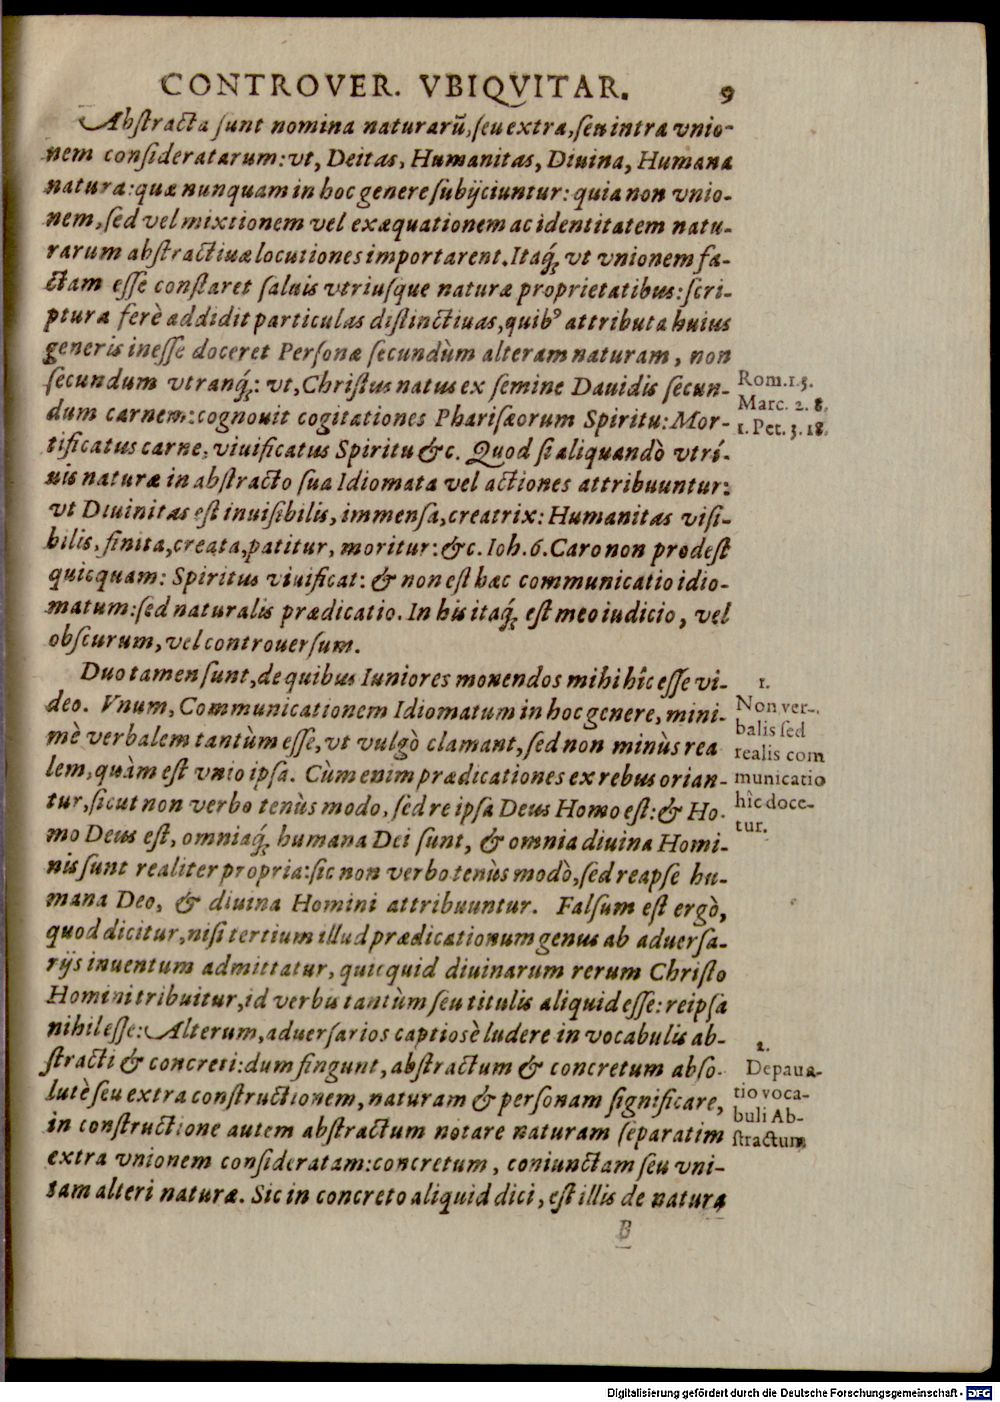 CONTROVER. VBIQVITAR. 9
Abſtracta ſunt nomina naturarū, ſeu extra, ſeu intra vnio-
nem conſideratarum: vt, Deitas, Humanitas, Diuina, Humana
natura: quæ nunquam in hoc genere ſubijciuntur: quia non vnio-
nem, ſed vel mixtionem vel exæquationem ac identitatem natu-
rarum abſtractiuæ locutiones importarent. Itaq́; vt vnionem fa-
ctam eſſe conſtaret ſaluis vtriuſque naturæ proprietatibus: ſcri-
ptura ferè addidit particulas diſtinctiuas, quibꝰ attributa huius
generis ineſſe doceret Perſonæ ſecundùm alteram naturam, non
ſecundum vtranq́;: vt, Chriſtus natus ex ſemine Dauidis ſecun-
Rom. 1.3.
dum carnem: cognouit cogitationes Phariſæorum Spiritu: Mor-
Marc. 2. 8.
1. Pet. 3. 18.
tificatus carne, viuificatus Spiritu &c. Quod ſi aliquandò vtrí-
uis naturæ in abſtracto ſua Idiomata vel actiones attribuuntur:
vt Diuinitas eſt inuiſibilis, immenſa, creatrix: Humanitas viſi-
bilis, finita, creata, patitur, moritur: &c. Ioh. 6. Caro non prodeſt
quicquam: Spiritus viuificat: & non eſt hæc communicatio idio-
matum: ſed naturalis prædicatio. In his itaq́; eſt meo iudicio, vel
obſcurum, vel controuerſum.
Duo tamen ſunt, de quibus Iuniores monendos mihi hîc eſſe vi-
1.
deo. Vnum, Communicationem Idiomatum in hoc genere, mini-
Non ver-
mè verbalem tantùm eſſe, vt vulgò clamant, ſed non minùs rea
balis ſed
realis com
lem, quàm eſt vnio ipſa. Cùm enim prædicationes ex rebus orian-
municatio
tur, ſicut non verbo tenùs modo, ſed re ipſa Deus Homo eſt: & Ho-
hîc doce-
tur.
mo Deus eſt, omniaq́; humana Dei ſunt, & omnia diuina Homi-
nis ſunt realiter propria: ſic non verbo tenùs modò, ſed reapſe hu-
mana Deo, & diuina Homini attribuuntur. Falſum eſt ergò,
quod dicitur, niſi tertium illud prædicationum genus ab aduerſa-
rijs inuentum admittatur, quicquid diuinarum rerum Chriſto
Homini tribuitur, id verbis tantùm ſeu titulis aliquid eſſe: reipſa
nihil eſſe: Alterum, aduerſarios captiosè ludere in vocabulis ab-
2.
ſtracti & concreti: dum fingunt, abſtractum & concretum abſo-
Depaua-
lutè ſeu extra conſtructionem, naturam & perſonam ſignificare,
tio voca-
buli Ab-
in conſtructione autem abſtractum notare naturam ſeparatim
ſtractum
extra vnionem conſideratam: concretum, coniunctam ſeu vni-
tam alteri naturæ. Sic in concreto aliquid dici, eſt illis de natura
B
Digitalisierung gefördert durch die Deutsche Forschungsgemeinschaft - DFG